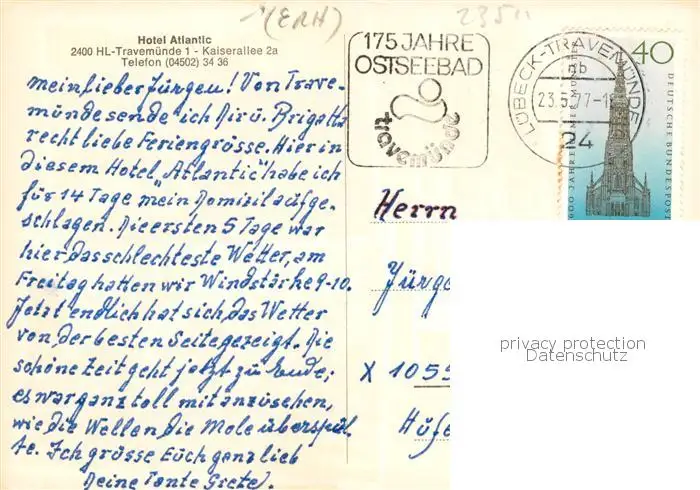 (ERH)
2351
Hotel Atlantic
2400 HL-Travemünde 1 - Kaiserallee 2a
Telefon (04502) 34 36
mein lieber Jürgen! Von Trave-
münde sende ich Dir u. Brigitte
recht liebe Feriengrüsse. Hier in
diesem Hotel "Atlantic" habe ich
für 14 Tage mein Domizil aufge-
schlagen. Die ersten 5 Tage war
hier das schlechteste Wetter, am
Freitag hatten wir Windstärke 9-10.
Jetzt endlich hat sich das Wetter
von der besten Seite gezeigt. Die
schöne Zeit geht jetzt zu Ende;
es war ganz toll mit anzusehen,
wie die Wellen die Mole überspül-
te. Ich grüsse Euch ganz lieb
Deine Tante Grete.
175 JAHRE
OSTSEEBAD
travemünde
LÜBECK-TRAVEMÜNDE
nb
23.5.77-1
24
40
DEUTSCHE BUNDESPOST
600 JAHRE ULMER MÜNSTER
Herrn
Jürge
X 1055
Hufe
privacy protection
Datenschutz